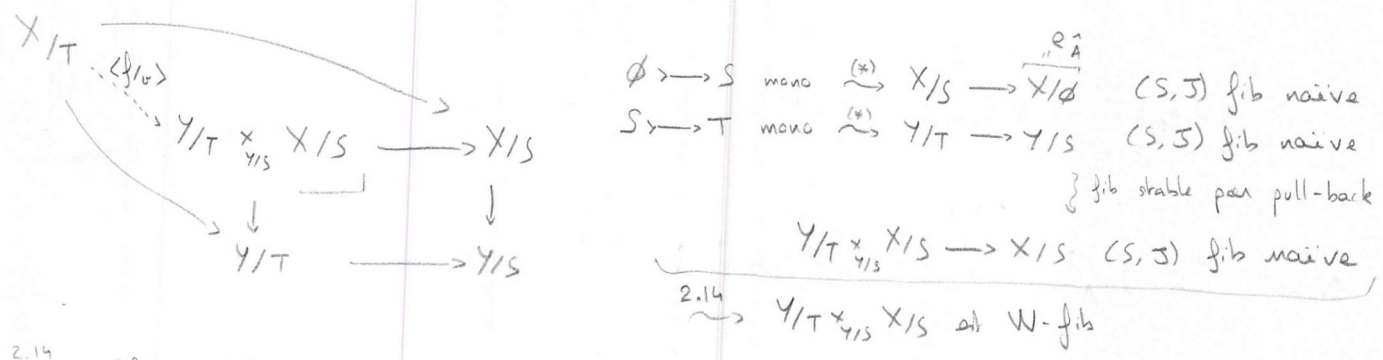 X/T
<f/v>
Y/T ×_{Y/S} X/S → X/S
Y/T → Y/S
e_Â
"
∅ >→ S mono (*) ⇝ X/S → X/∅ (S, J) fib naïve
S >→ T mono (*) ⇝ Y/T → Y/S (S, J) fib naïve
fib stable par pull-back
Y/T ×_{Y/S} X/S → X/S (S, J) fib naïve
2.14 ⇝ Y/T ×_{Y/S} X/S est W-fib
2.14